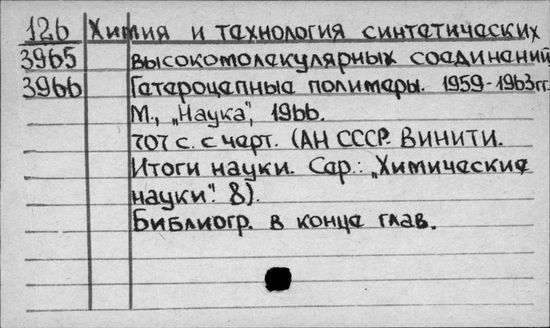 126 Химия и технология синтетических
3965 высокомолекулярных соединений
3966 Гетероцепные полимеры. 1959-1963гг.
М., „Наука", 1966.
707 с. с черт. (АН СССР. ВИНИТИ.
Итоги науки. Сер.: „Химические
науки". 8).
Библиогр. в конце глав.